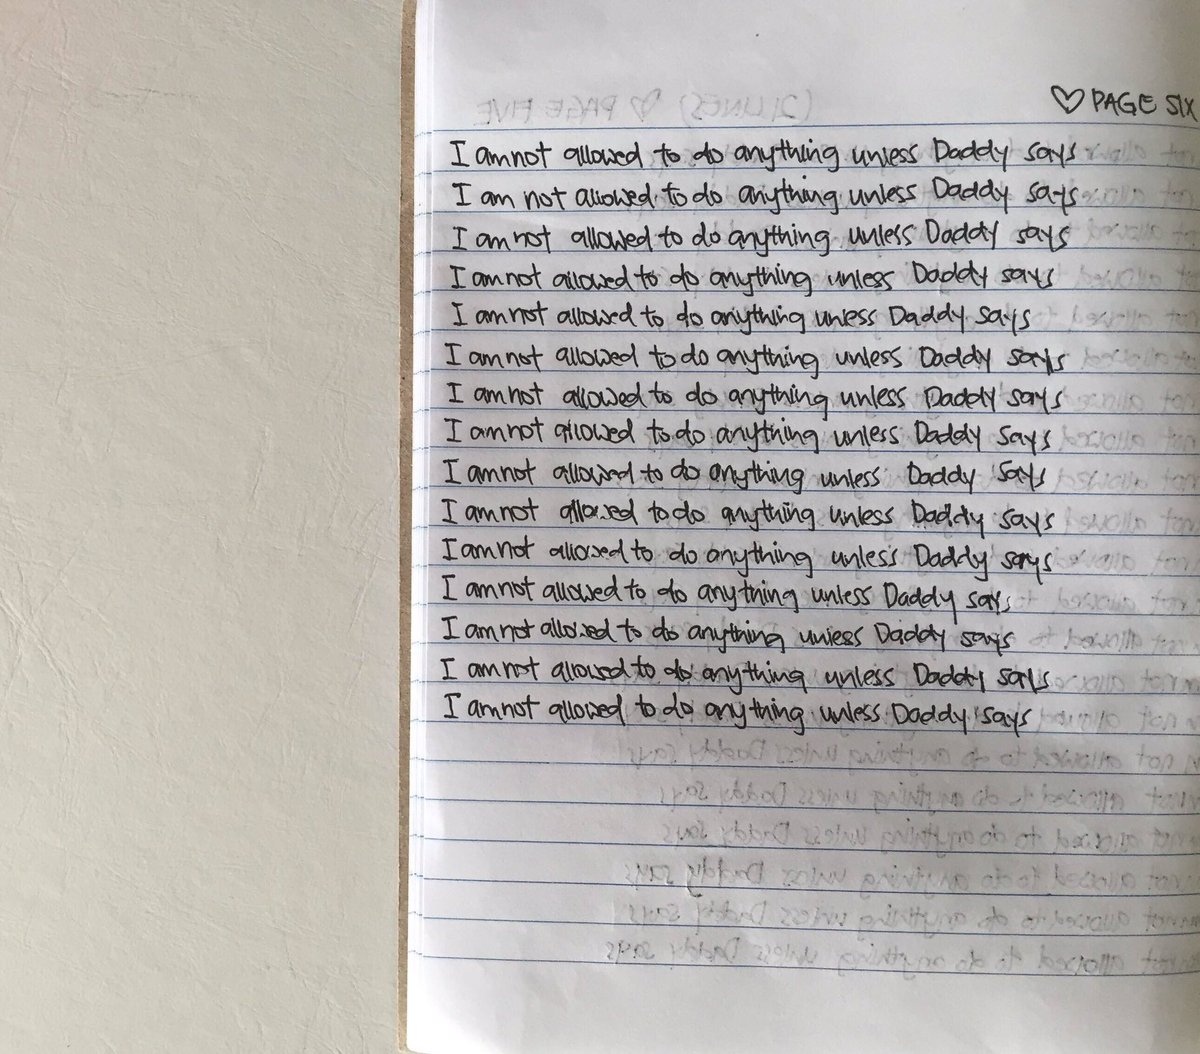 ♡ PAGE SIX
I am not allowed to do anything unless Daddy says
I am not allowed to do anything unless Daddy says
I am not allowed to do anything unless Daddy says
I am not allowed to do anything unless Daddy says
I am not allowed to do anything unless Daddy says
I am not allowed to do anything unless Daddy says
I am not allowed to do anything unless Daddy says
I am not allowed to do anything unless Daddy says
I am not allowed to do anything unless Daddy says
I am not allowed to do anything unless Daddy says
I am not allowed to do anything unless Daddy says
I am not allowed to do anything unless Daddy says
I am not allowed to do anything unless Daddy says
I am not allowed to do anything unless Daddy says
I am not allowed to do anything unless Daddy says